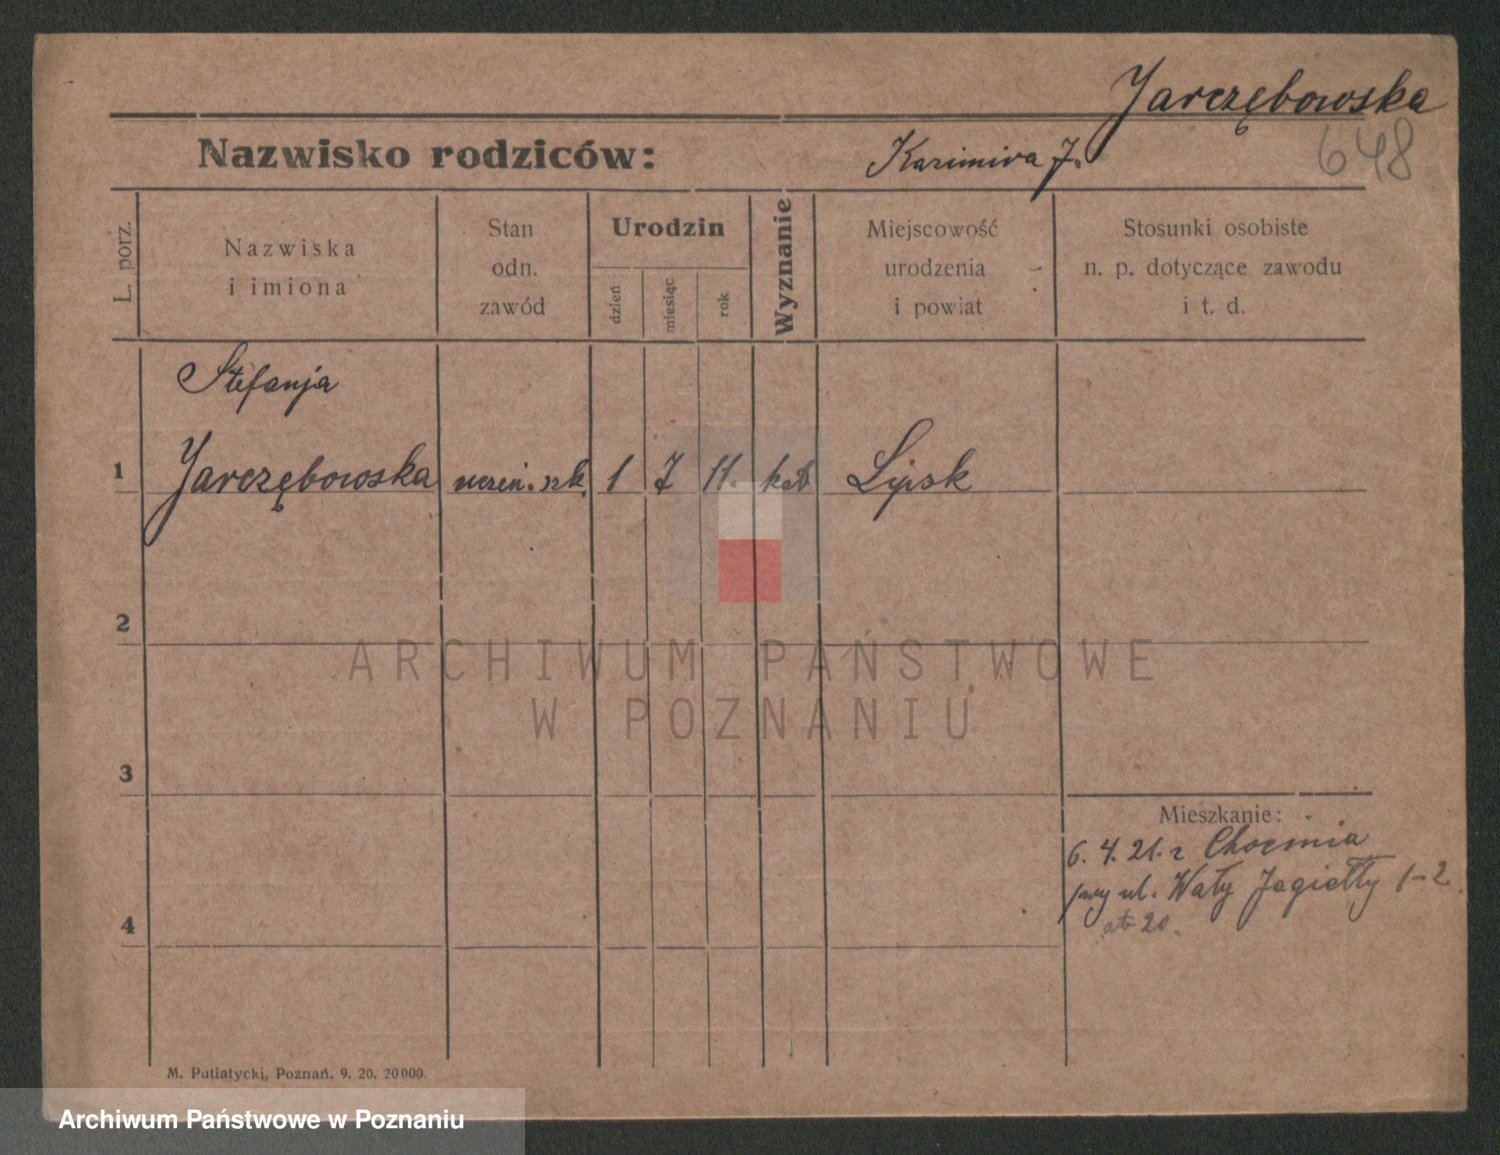 Jarczębowska
Nazwisko rodziców:
Kazimira J.
648
L. porz.
Nazwiska
i imiona
Stan
odn.
zawód
Urodzin
dzień
miesiąc
rok
Wyznanie
Miejscowość
urodzenia
i powiat
Stosunki osobiste
n. p. dotyczące zawodu
i t. d.
Stefanja
1 Jarczębowska uczeń. szk. 1 7 11. kat Lipsk
2
ARCHIWUM PAŃSTWOWE
W POZNANIU
3
Mieszkanie:
6. 4. 21. z Chocmia
przy ul. Wały Jagiełły 1-2
4
20.
M. Putiatycki, Poznań. 9. 20. 20000.
Archiwum Państwowe w Poznaniu